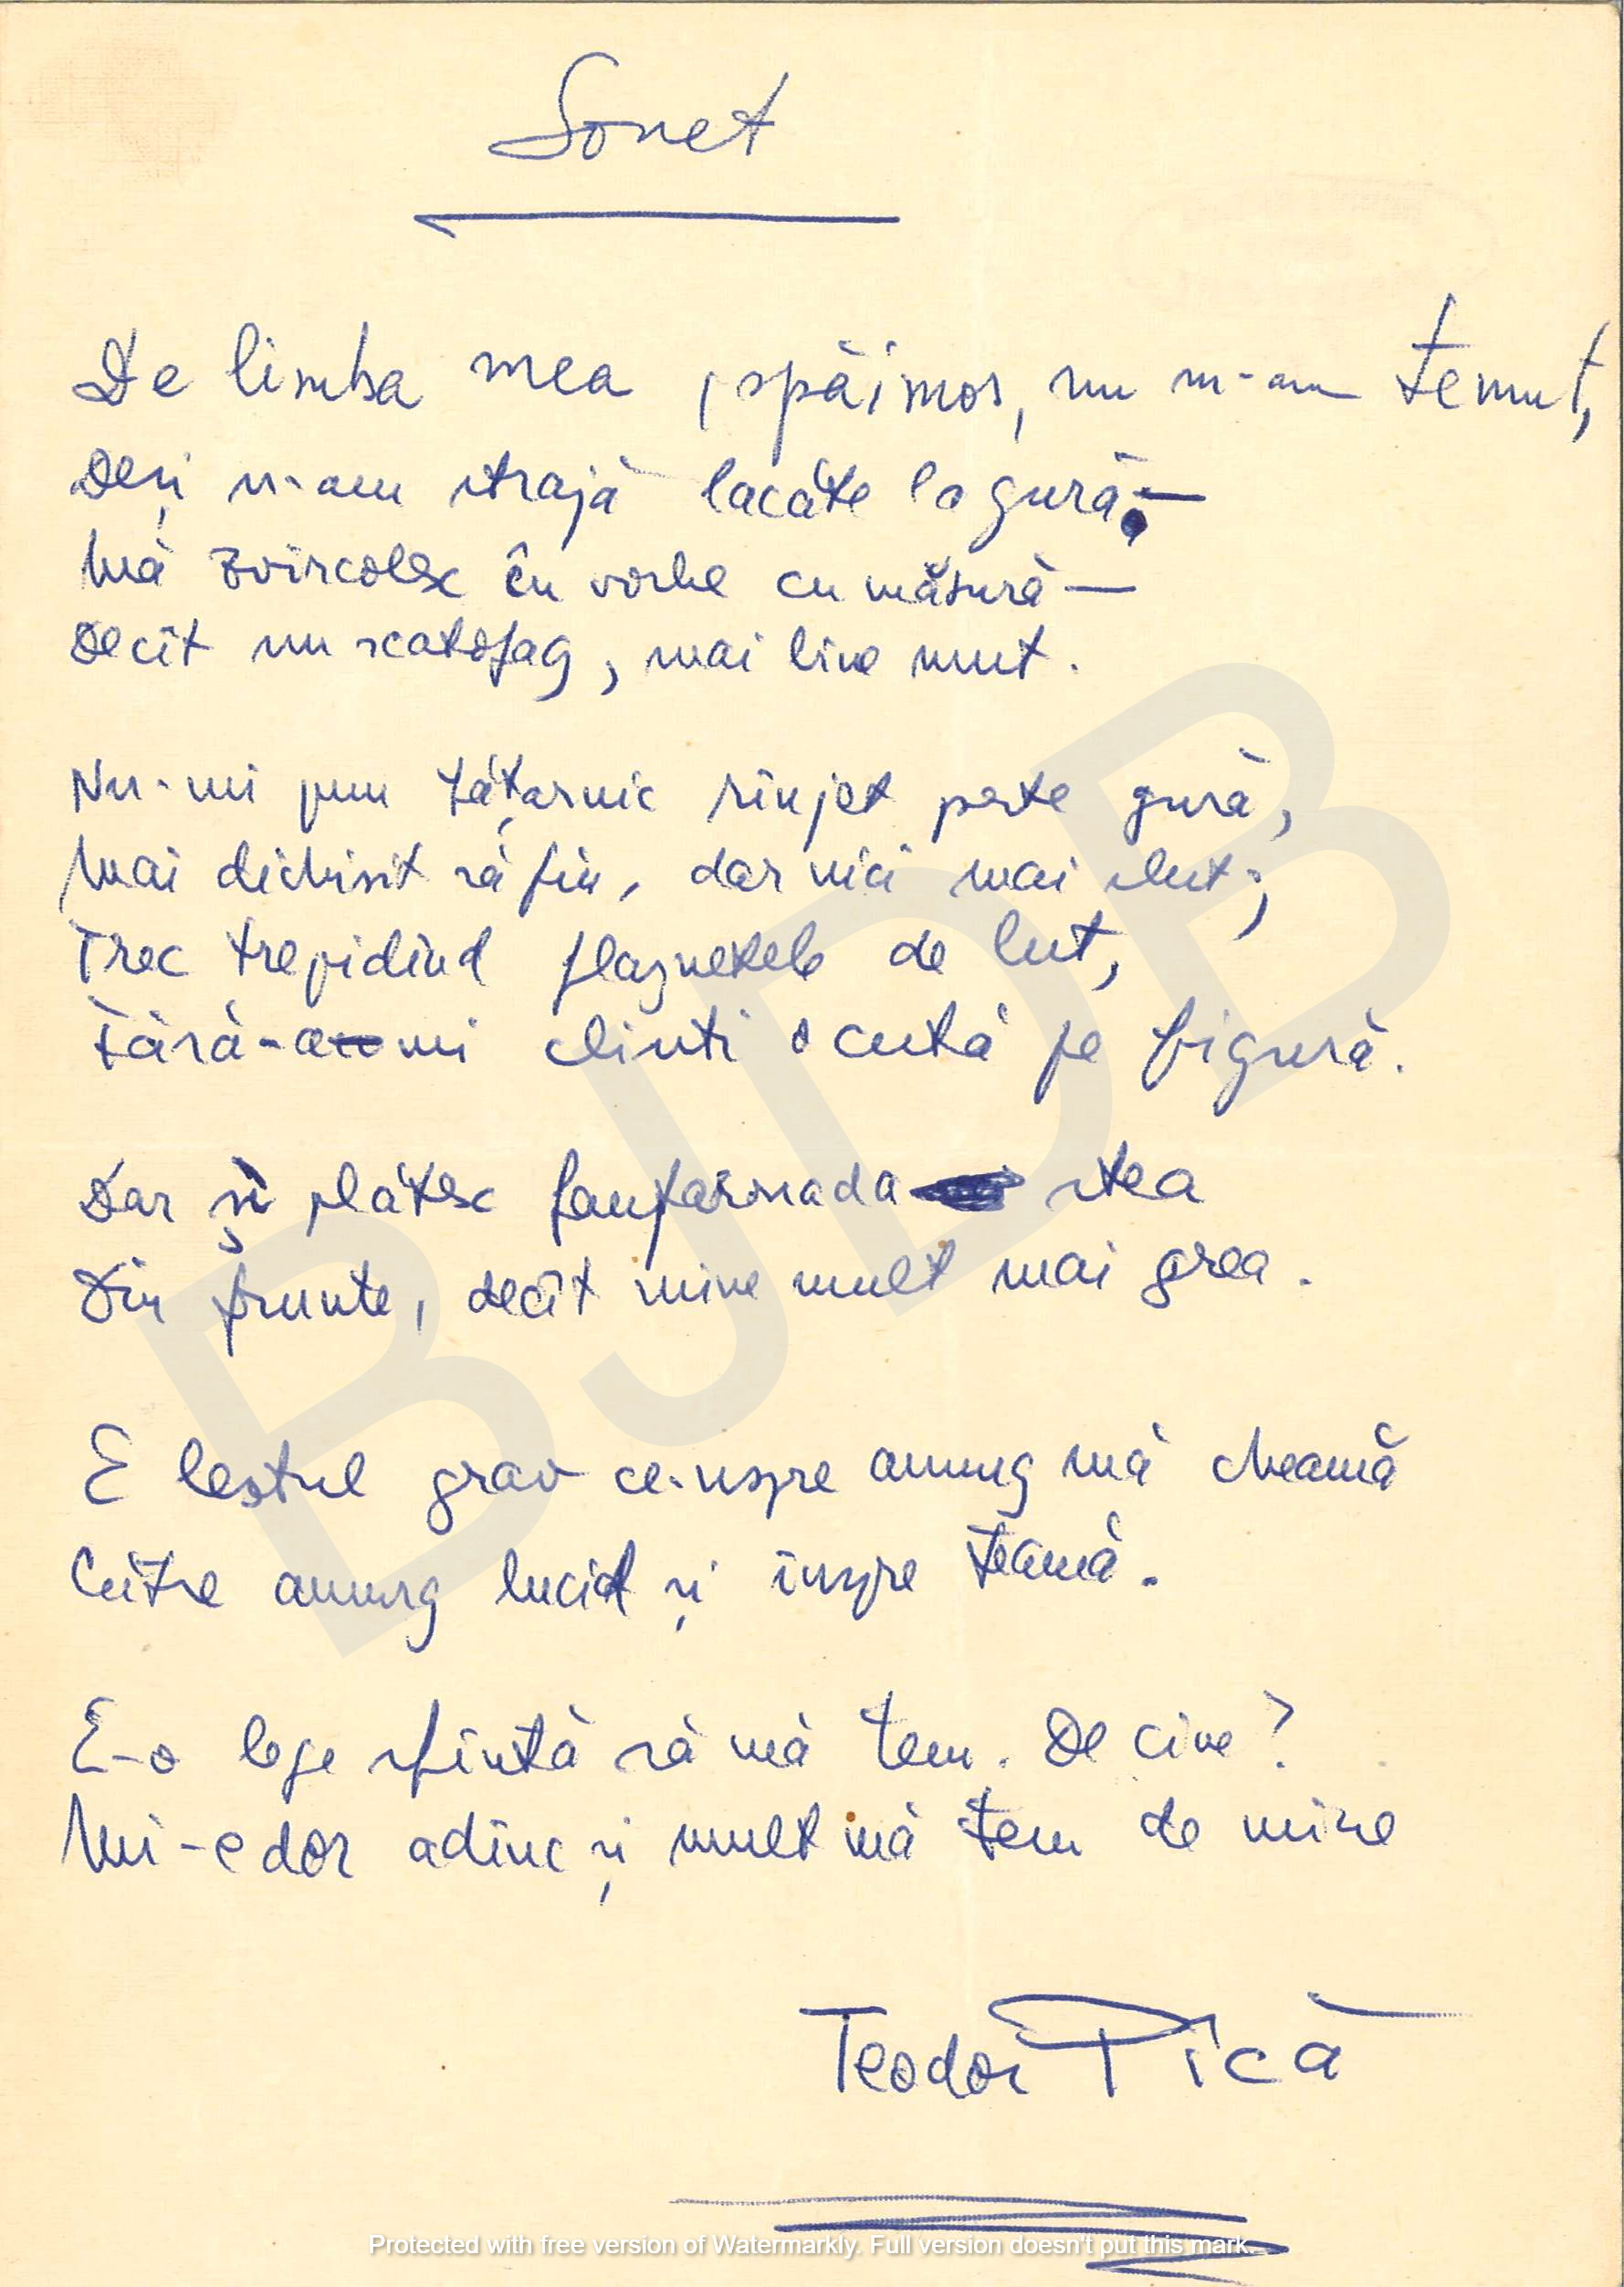 Sonet
De limba mea, spăimos, nu m-am temut,
Deși n-am strajă lacăte la gură
Mă zvîrcolesc în vorbe cu măsură —
Decît un scatofag, mai bine mut.
Nu-mi pun fățarnic rînjet peste gură,
Mai dichisit să fiu, dar nici mai slut;
Trec trepidînd flașnetele de lut,
Fără-a-mi clinti o cută pe figură.
Dar și plătesc fanfaronada stea
Din frunte, decît mine mult mai grea.
E lestul grav ce-nspre amurg mă cheamă
Către amurg lucid și înspre teamă.
E-o lege sfîntă să mă tem. De cine?
Mi-e dor adînc și mult mă tem de mine
Teodor Pîcă
BJDB
Protected with free version of Watermarkly. Full version doesn't put this mark.